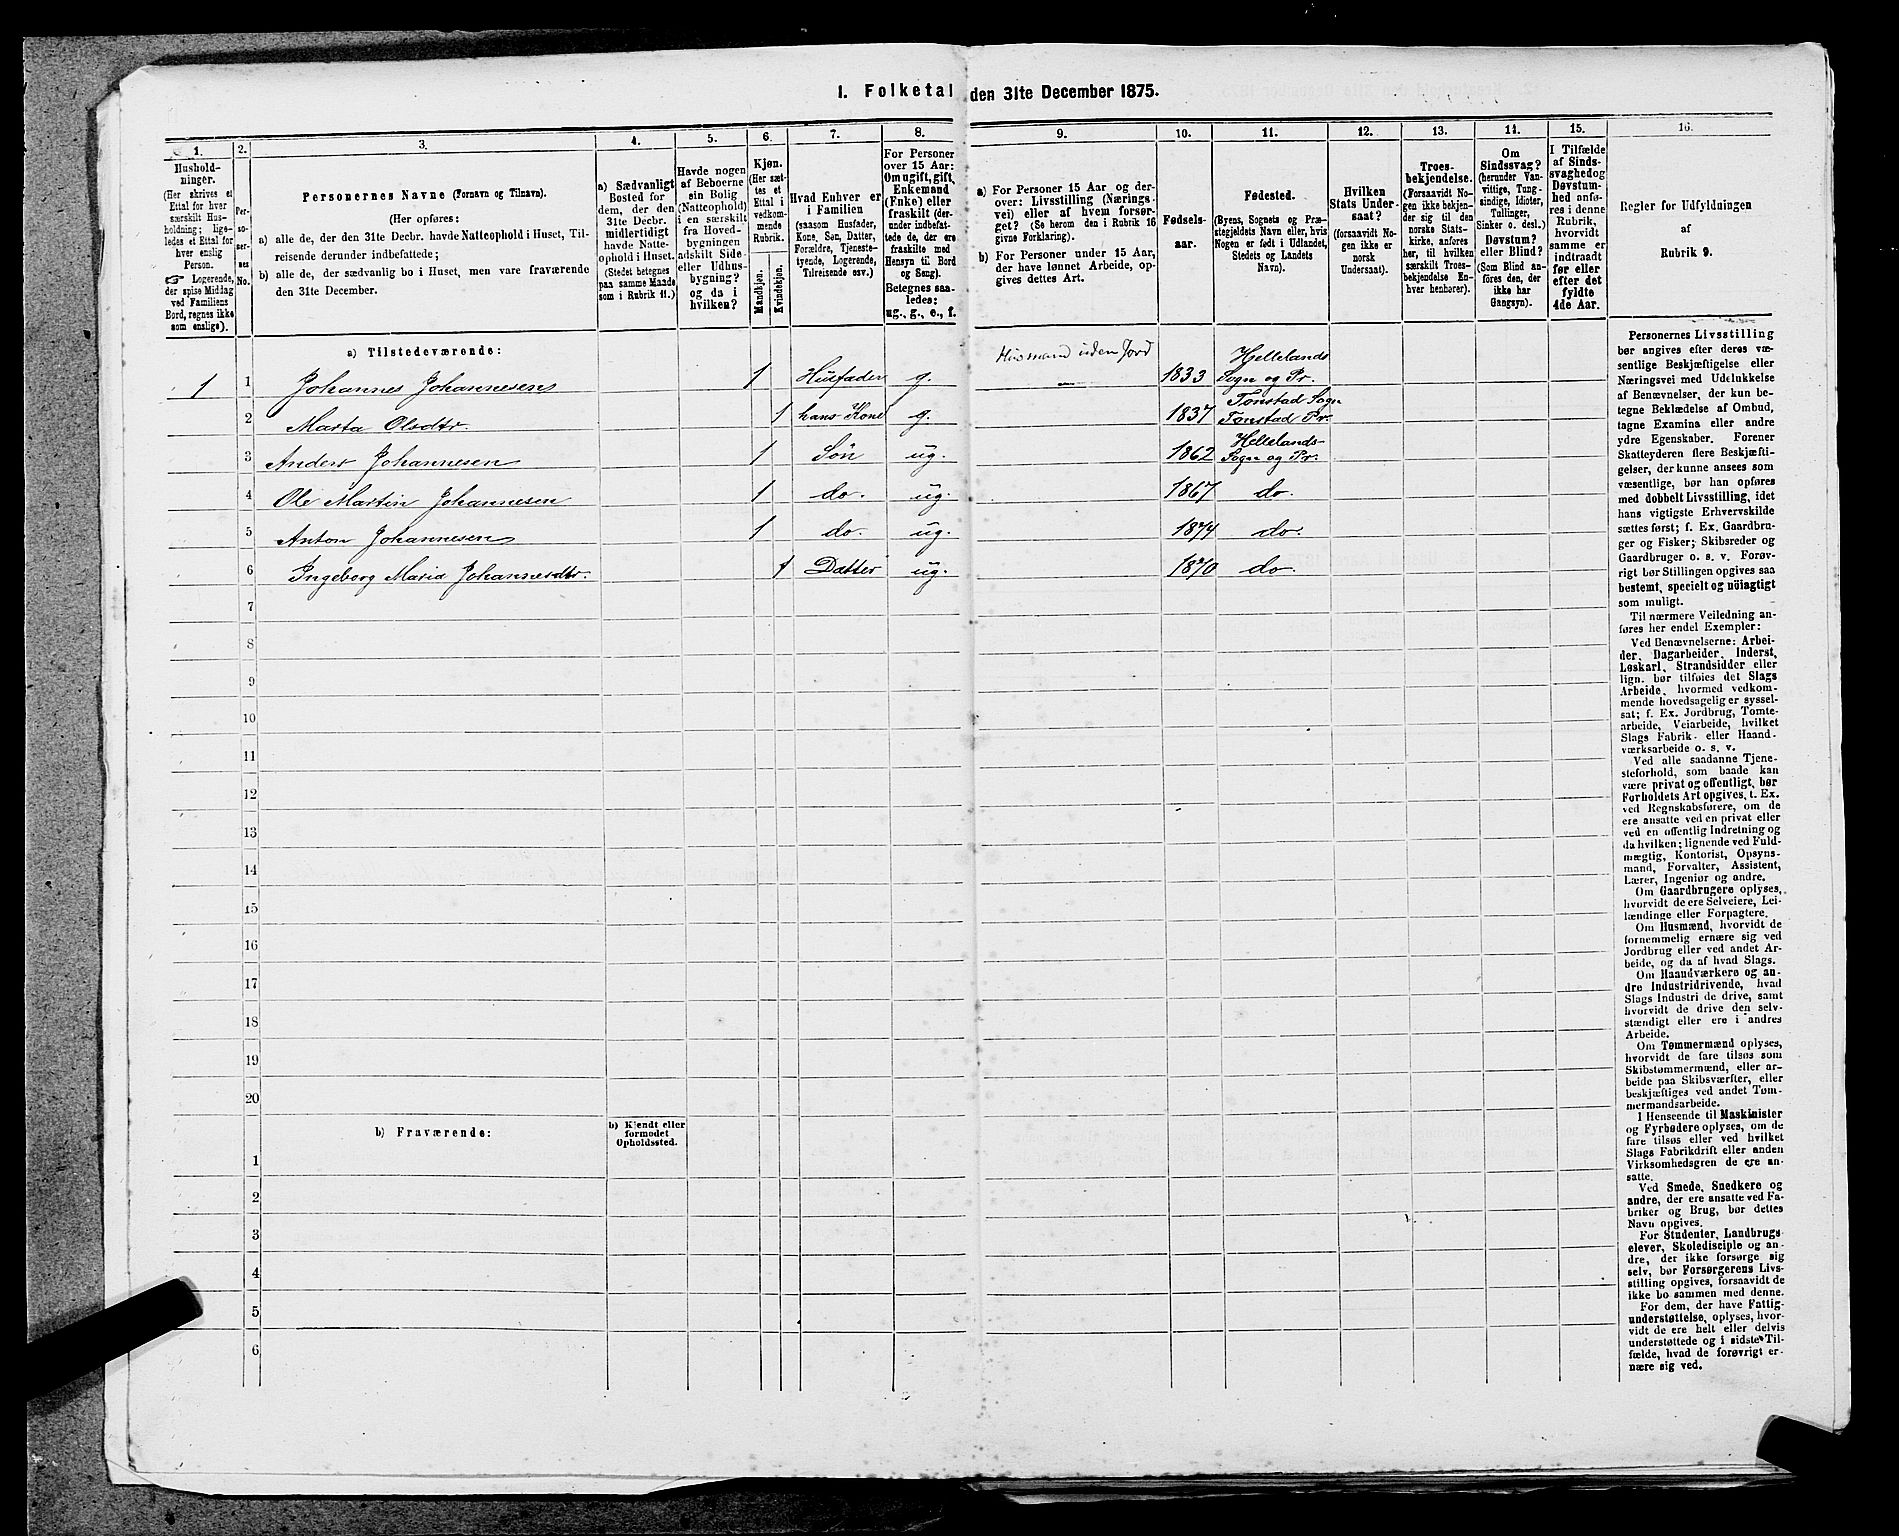 1. Folketal den 31te December 1875.
1.
Hushold-
ninger.
(Her skrives et
Ettal for hver
særskilt Hus-
holdning; lige-
ledes et Ettal for
hver enslig
Person.
Logerende,
der spise Middag
ved Familiens
Bord, regnes ikke
som enslige).
2.
Per-
soner-
nes
No.
3.
Personernes Navne (Fornavn og Tilnavn).
(Her opføres:
a) alle de, der den 31te Decbr. havde Natteophold i Huset, Til-
reisende derunder indbefattede;
b) alle de, der sædvanlig bo i Huset, men vare fraværende
den 31te December.
4.
a) Sædvanligt
Bosted for
dem, der den
31te Decbr.
midlertidigt
havde Natte-
ophold i Huset.
(Stedet betegnes
paa samme Maade
som i Rubrik 11.)
5.
Havde nogen
af Beboerne
sin Bolig
(Natteophold)
i en særskilt
fra Hoved-
bygningen
adskilt Side-
eller Udhus-
bygning?
og da i
hvilken?
6.
Kjøn.
(Her sæt-
tes et
Ettal i
vedkom-
mende
Rubrik.
Mandkjøn.
Kvindekjøn.
7.
Hvad Enhver er
i Familien
(saasom Husfader,
Kone, Søn, Datter,
Forældre, Tjeneste-
tyende, Logerende,
Tilreisende osv.)
8.
For Personer
over 15 Aar:
Om ugift, gift,
Enkemand
(Enke) eller
fraskilt (der-
under indbefat-
tede de, der ere
fraskilte med
Hensyn til Bord
og Seng).
Betegnes saa-
ledes:
ug., g., e., f.
9.
a) For Personer 15 Aar og der-
over: Livsstilling (Nærings-
vei) eller af hvem forsør-
get? (Se herom den i Rubrik 16
givne Forklaring).
b) For Personer under 15 Aar,
der have lønnet Arbeide, op-
gives dettes Art.
10.
Fødsels-
aar.
11.
Fødested.
(Byens, Sognets og Præ-
stegjeldets Navn eller, hvis
Nogen er født i Udlandet,
Stedets og Landets
Navn).
12.
Hvilken
Stats Under-
saat?
(forsaavidt No-
gen ikke er
norsk
Undersaat).
13.
Troes-
bekjendelse.
(Forsaavidt No-
gen ikke bekjen-
der sig til den
norske Stats-
kirke, anføres
her, til hvilken
særskilt Troes-
bekjendelse En-
hver henhører).
14.
Om
Sindssvag?
(herunder Van-
vittige, Tung-
sindige, Idioter,
Tullinger,
Sinker o. desl.)
Døvstum?
eller Blind?
(Som Blind an-
føres den, der
ikke har
Gangsyn).
15.
I Tilfælde
af Sinds-
svaghed og
Døvstum-
hed anfø-
res i denne
Rubrik,
hvorvidt
samme er
indtraadt
før eller
efter det
fyldte
4de Aar.
16.
Regler for Udfyldningen
af
Rubrik 9.
a) Tilstedeværende:
1 1 Johannes Johannesen 1 Husfader g. Husmand uden Jord 1833 Hellelands
Sogn og Pr.
2 Marta Olsdtr. 1 hans Kone g. 1837 Tonstad Sogn
Tonstad Pr.
3 Anders Johannesen 1 Søn ug. 1862 Hellelands-
Sogn og Pr.
4 Ole Martin Johannesen 1 do. ug. 1867 do.
5 Anton Johannesen 1 do. ug. 1874 do.
6 Ingeborg Maria Johannesdtr. 1 Datter ug. 1870 do.
7
8
9
10
11
12
13
14
15
16
17
18
19
20
b) Fraværende:
b) Kjendt eller
formodet
Opholdssted.
1
2
3
4
5
6
Personernes Livsstilling
bør angives efter deres væ-
sentlige Beskjæftigelse eller
Næringsvei med Udelukkelse
af Benævnelser, der kun be-
tegne Beklædelse af Ombud,
tagne Examina eller andre
ydre Egenskaber. Forener
Skatteyderen flere Beskjæfti-
gelser, der kunne ansees som
væsentlige, bør han opføres
med dobbelt Livsstilling, idet
hans vigtigste Erhvervskilde
sættes først; f. Ex. Gaardbru-
ger og Fisker; Skibsreder og
Gaardbruger o. s. v. Forøv-
rigt bør Stillingen opgives saa
bestemt, specielt og nöiagtigt
som muligt.
Til nærmere Veiledning an-
føres her endel Exempler:
Ved Benævnelserne: Arbei-
der, Dagarbeider, Inderst,
Løskarl, Strandsidder eller
lign. bør tilføies det Slags
Arbeide, hvormed vedkom-
mende hovedsagelig er syssel-
sat; f. Ex. Jordbrug, Tomte-
arbeide, Veiarbeide, hvilket
Slags Fabrik- eller Haand-
værksarbeide o. s. v.
Ved alle saadanne Tjene-
steforhold, som baade kan
være privat og offentligt, bør
Forholdets Art opgives, t. Ex.
ved Regnskabsførere, om de
ere ansatte ved en privat eller
ved en offentlig Indretning og
da hvilken; lignende ved Fuld-
mægtig, Kontorist, Opsyns-
mand, Forvalter, Assistent,
Lærer, Ingeniør og andre.
Om Gaardbrugere oplyses,
hvorvidt de ere Selveiere, Lei-
lændinge eller Forpagtere.
Om Husmænd, hvorvidt de
fornemmelig ernære sig ved
Jordbrug eller ved andet Ar-
beide, og da af hvad Slags.
Om Haandværkere og an-
dre Industridrivende, hvad
Slags Industri de drive, samt
hvorvidt de drive den selv-
stændigt eller ere i andres
Arbeide.
Om Tømmermænd oplyses,
hvorvidt de fare tilsøs som
Skibstømmermænd, eller ar-
beide paa Skibsværfter, eller
beskjæftiges ved andet Tøm-
mermandsarbeide.
I Henseende til Maskinister
og Fyrbødere oplyses, om de
fare tilsøs eller ved hvilket
Slags Fabrikdrift eller anden
Virksomhedsgren de ere an-
satte.
Ved Smede, Snedkere og
andre, der ere ansatte ved Fa-
briker og Brug, bør dettes
Navn opgives.
For Studenter, Landbrugs-
elever, Skoledisciple og an-
dre, der ikke forsørge sig
selv, bør Forsørgerens Livs-
stilling opgives, forsaavidt de
ikke bo sammen med denne.
For dem, der have Fattig-
understøttelse, oplyses, hvor-
vidt de ere helt eller delvis
understøttede og i sidste Til-
fælde, hvad de forøvrigt er-
nære sig ved.